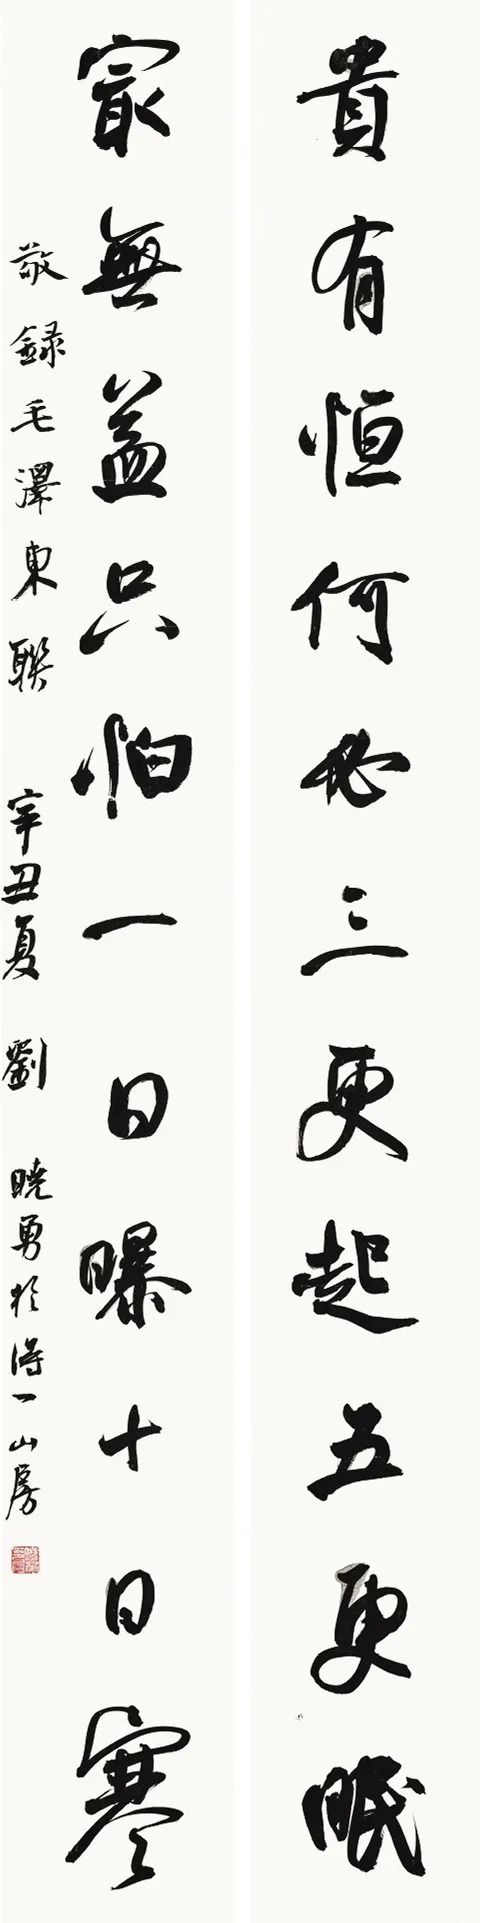 貴有恒何必三更起五更眠
冣無益只怕一日曝十日寒
敬録毛澤東聯 辛丑夏 劉曉勇於得一山房